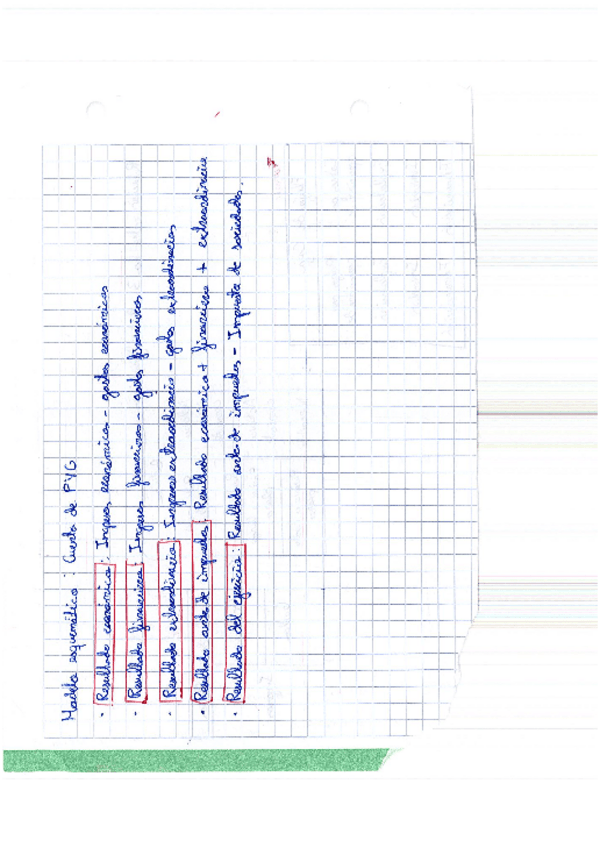 Modelo esquemático : Cuenta de PYG
· Resultado económico : Ingresos económicos - gastos económicos
· Resultado financiero : Ingresos financieros - gastos financieros
· Resultado extraordinario : Ingresos extraordinarios - gastos extraordinarios
· Resultado antes de impuestos : Resultado económico + financiero + extraordinario
· Resultado del ejercicio : Resultado antes de impuestos - Impuesto de sociedades.